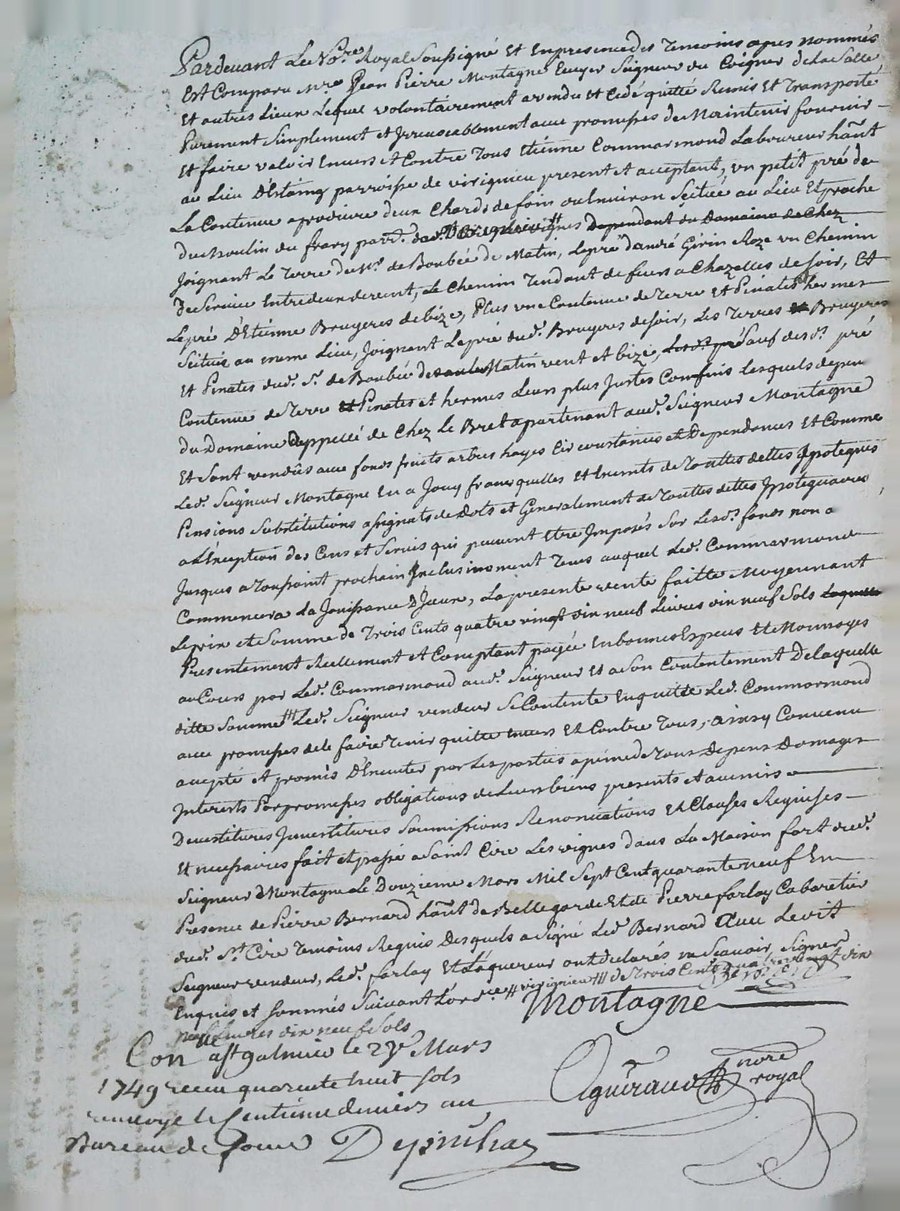 Pardevant Le No.re Royal Soussigné Et En presence des Temoins apres nommés
Est Comparu M.re Jean Pierre Montagne Ecuyer Seigneur du Coignet de la Salle
Et autres Lieux Lequel volontairement a vendu et Cedé quitté Remis et Transporté
Purement Simplement et Irrevocablement avec promesses de Maintenir fournir
Et faire valoir Envers et Contre Tous Etienne Commarmond Laboureur ha.nt
au Lieu D'Estaing parroisse de virignieu present et acceptant, un petit pré de
La Contenue a produire deux Chards de foin ou Environ Scitué au Lieu Et proche
du Moulin du frary parr. Dependant du Domaine de Chez
Joignant Le Terre du S.r de Boubée de Matin, Le pré d'andré Gérin Roze un Chemin
De Service Entredeux de vent, Le Chemin Tendant de feurs a Chazelles de soir, Et
Le pré D'Etienne Bruyeres de bize, Plus une Contenue de Terre et Pinatés hermes
Scitués au meme Lieu, Joignant Le pré dud. Bruyeres de soir, Les Terres Bruyeres
Et Pinatés dud. S.r de Boubée de Matin vent et bize, Sauf pré
Contenue de Terre Pinatés et hermes Leurs plus Justes Confins Lesquels depen
du Domaine appellé de Chez Le Bret apartenant aud. Seigneur Montagne
Et sont vendûs avec fonds fruits arbres hayes Circonstances et Dependances Et Comme
Led. Seigneur Montagne En a Jouy francs quittes et Exemts de Touttes dettes Ipoteques
Pensions Substitutions asignats de Dots et Generalement de Touttes dettes Ipotequaires
a L'exception des Cens et Servis qui peuvent Etre Imposés Sur Lesd. fonds non a
Jusques a Toussaint prochain Inclusivement Tems auquel Led. Commarmond
Commencera La Jouissance D'Iceux, La presente vente faitte Moyennant
Le prix et Somme de Trois Cents quatre vingt dix neuf Livres dix neuf Sols
Presentement Reellement et Comptant payée En bonnes Especes Et Monnoyes
au Cours par Led. Commarmond aud. Seigneur Et a Son Contentement De laquelle
ditte Somme Led. Seigneur vendeur Se Contente En quitte Led. Commarmond
avec promesses de le faire Tenir quitte Envers Et Contre Tous, ainsy Convenu
accepté et promis D'Executer par Les parties a peine de Tous Depens Domages
Interests Par promesses obligations de Leurs biens presents et avenirs
Devestitures Investitures Soumissions Renonciations Et Clauses Requises
Et necessaires fait et passé a Saint Cire Les vignes dans La Maison fort dud.
Seigneur de Montagne Le Douzieme Mars Mil Sept Cent quarante neuf En
Presence de Pierre Bernard ha.nt de Bellegarde Et de Pierre farlay Cabaretier
dud. S.t Cire Temoins Requis Desquels a Signé Led. Bernard avec Ledit
Seigneur vendeur, Led. farlay Et L'aquereur ont Declarés ne Scavoir Signer
Enquis et Sommés Suivant L'ord.ce # virignieu ### de Trois Cents quatre vingt dix
neuf Livres dix neuf Sols
Montagne
Con a St Galmier le 23e Mars
1749 recu quarente huit sols
renvoyé le Centieme deniers au
Bureau de
Aguiraud
nore
royal